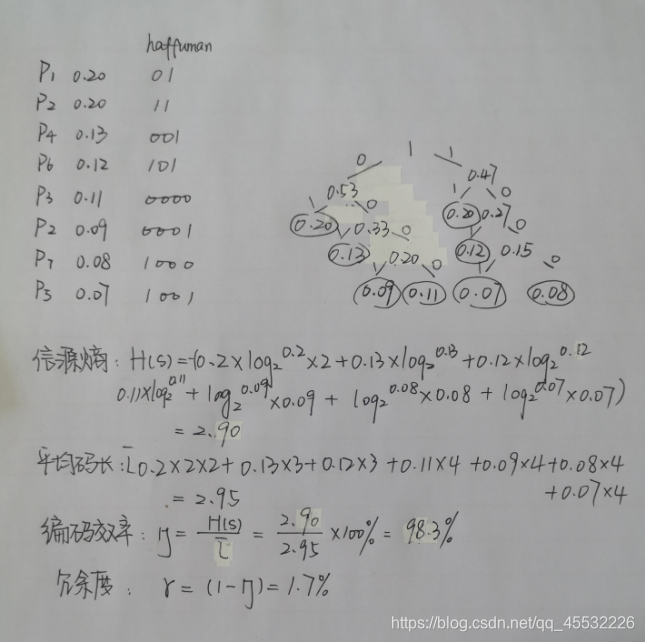 haffuman
P₁ 0.20 01
P₂ 0.20 11
P₄ 0.13 001
P₆ 0.12 101
P₃ 0.11 0000
P₂ 0.09 0001
P₇ 0.08 1000
P₅ 0.07 1001
0 1 1
0.53 0.47
1 0 1 0
0.20 0.33 0.20 0.27
1 0 1 0
0.13 0.20 0.12 0.15
1 0 1 0
0.09 0.11 0.07 0.08
信源熵: H(S)=-(0.2×log₂^0.2×2+0.13×log₂^0.13+0.12×log₂^0.12
0.11×log₂^0.11+log₂^0.09×0.09+log₂^0.08×0.08+log₂^0.07×0.07)
=2.90
平均码长: L̄0.2×2×2+0.13×3+0.12×3+0.11×4+0.09×4+0.08×4
+0.07×4
=2.95
编码效率: η=H(S)/L̄=2.90/2.95×100%=98.3%
冗余度: r=(1-η)=1.7%
https://blog.csdn.net/qq_45532226